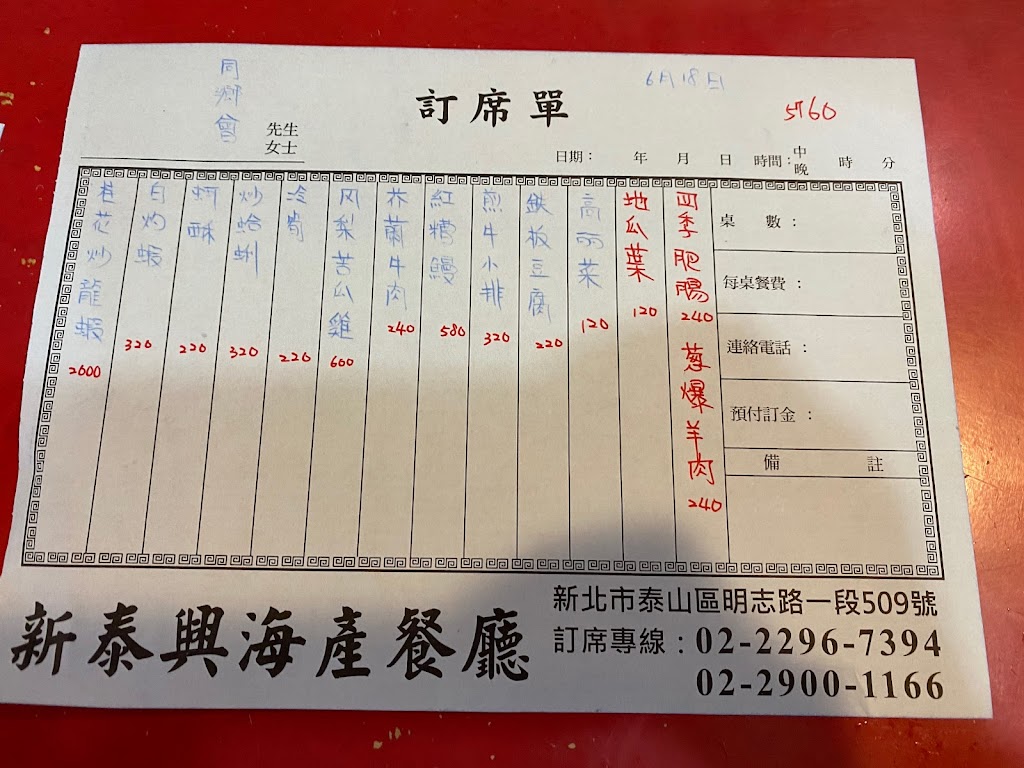 訂席單
6月18日
5760
同鄉會
先生
女士
日期： 年 月 日 時間：中晚 時 分
桌數：
每桌餐費：
連絡電話：
預付訂金：
備註
四季肥腸 240
葱爆羊肉 240
地瓜葉 120
高丽菜 120
鉄板豆腐 220
煎牛小排 320
紅糟鰻 580
芥蘭牛肉 240
风梨苦瓜雞 600
冷筍 220
炒蛤蜊 320
蚵酥 220
白灼蝦 320
桂花炒龍蝦 2000
新泰興海產餐廳
新北市泰山區明志路一段509號
訂席專線：02-2296-7394
02-2900-1166